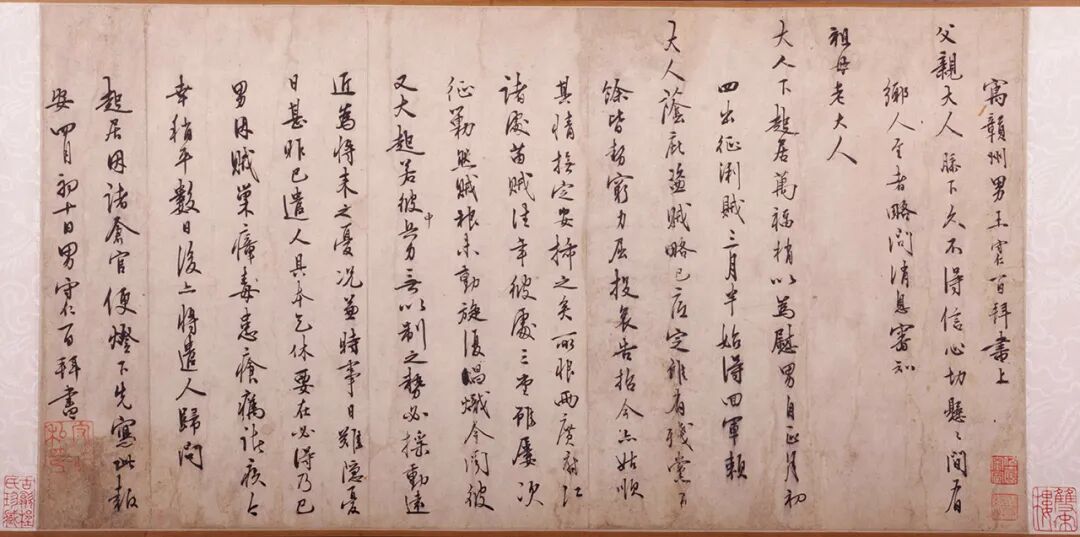 寓贛州男王守仁百拜書上
父親大人膝下久不得信心切懸懸間有
鄉人至者略問消息審知
祖母老大人
大人下起居萬福稍以為慰男自正月初
四出征浰賊三月半始得回軍賴
大人蔭庇盜賊略已底定雖有殘黨百
餘皆勢窮力屈投哀告招今亦姑順
其情撫定安插之矣所恨兩廣府江
諸處苗賊往年彼處三堂雖屢次
征勦然賊根未動旋復昌熾今聞彼
又大起若彼中兵力無以制之勢必搖動遠
近為將來之憂況兼時事日難隱憂
日甚昨已遣人具本乞休要在必得乃已
男因賊巢瘴毒患瘡癘諸疾今
幸稍平數日後亦將遣人歸問
起居因諸倉官便燈下先寫此報
安四月初十日男守仁百拜書